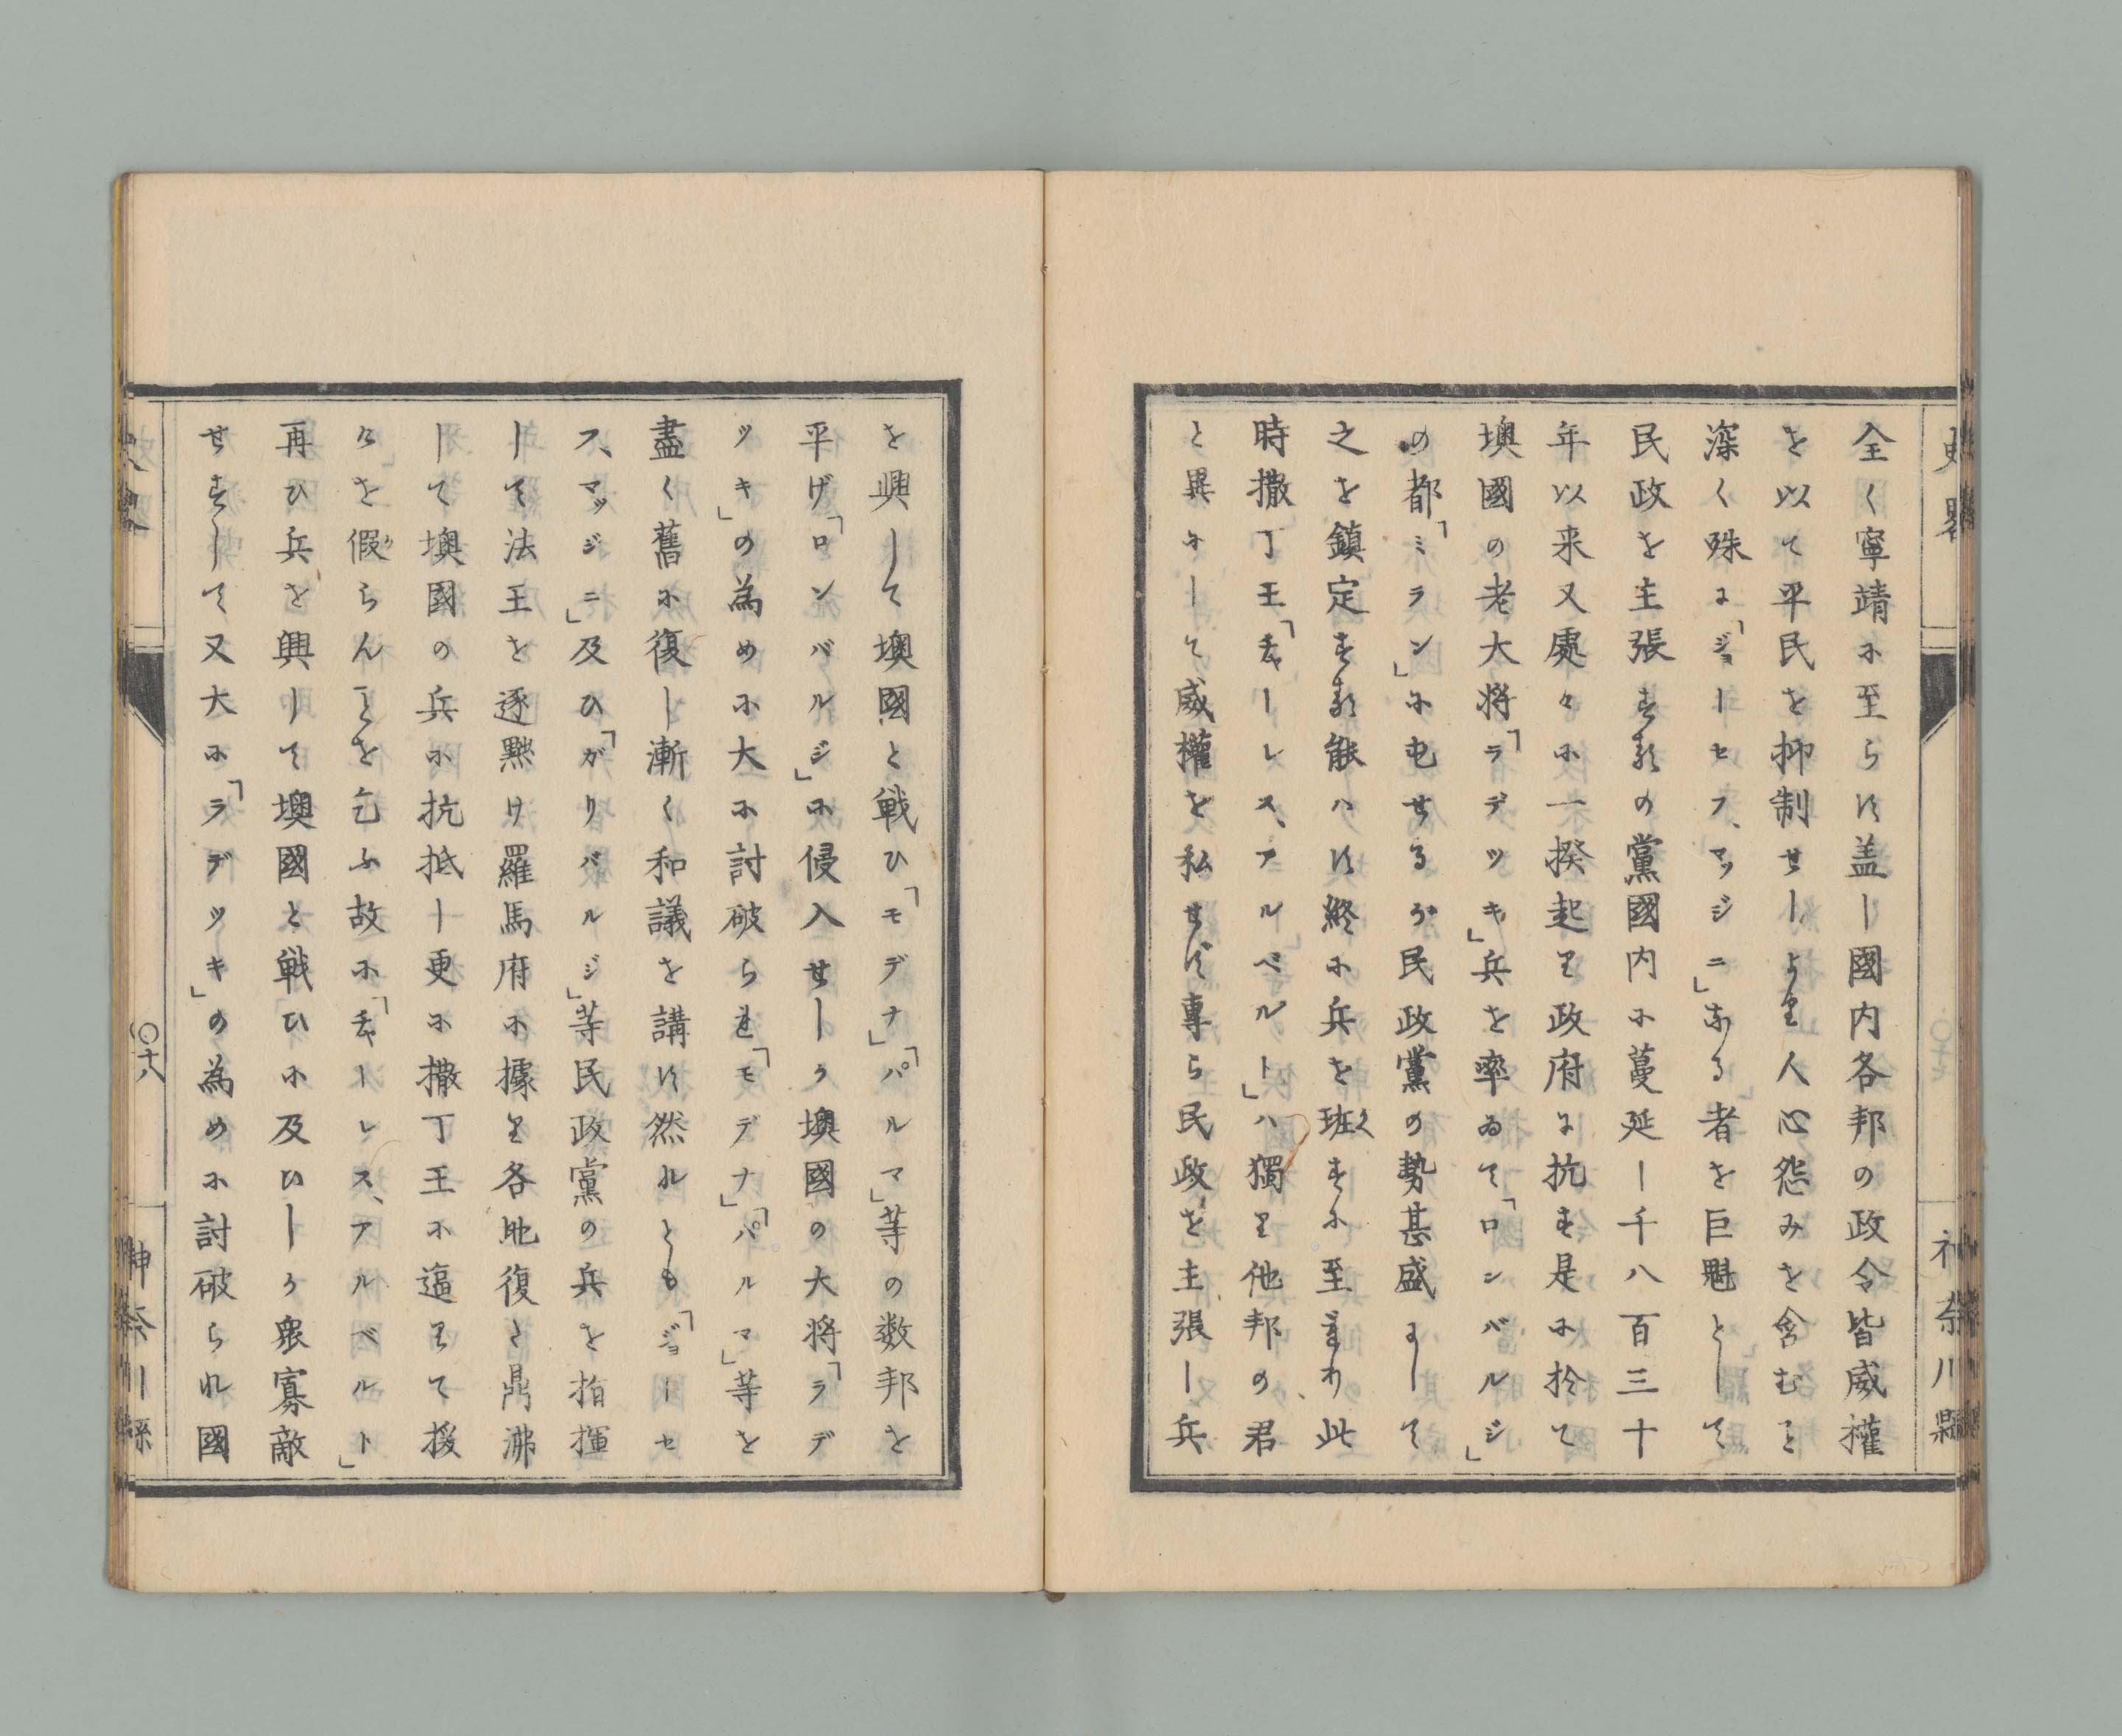 史畧
神奈川縣
全く寧靖に至らす盖し國内各邦の政令皆威權
を以て平民を抑制せしより人心怨みを含むこと
深く殊に「ジョーセフ、マッジニ」なる者を巨魁として
民政を主張するの黨國内に蔓延し千八百三十
年以来又處々に一揆起り政府に抗す是に於て
墺國の老大将「ラデツッキ」兵を率ゐて「ロンバルジ」
の都「ミラン」に屯せるが民政黨の勢甚盛にして
之を鎮定する能ハす終に兵を班すに至れり此
時撒丁王「チャーレス、アルベルト」ハ獨り他邦の君
と異にして威權を私せず專ら民政を主張し兵
を興して墺國と戦ひ「モデナ」「パルマ」等の数邦を
平げ「ロンバルジ」に侵入せしが墺國の大将「ラデ
ツキ」の為めに大に討破られ「モデナ」「パルマ」等を
盡く舊に復し漸く和議を講す然れとも「ジョーセ
フ、マッジニ」及ひ「ガリバルジ」等民政黨の兵を指揮
して法王を逐黜け羅馬府に據り各地復た鼎沸
して墺國の兵に抗抵し更に撒丁王に逼りて援
けを假らんことを乞ふ故に「チャーレス、アルベルト」
再ひ兵を興して墺國と戦ひに及ひしが衆寡敵
せずして又大に「ラデツッキ」の為めに討破られ國
〇十八
神奈川縣